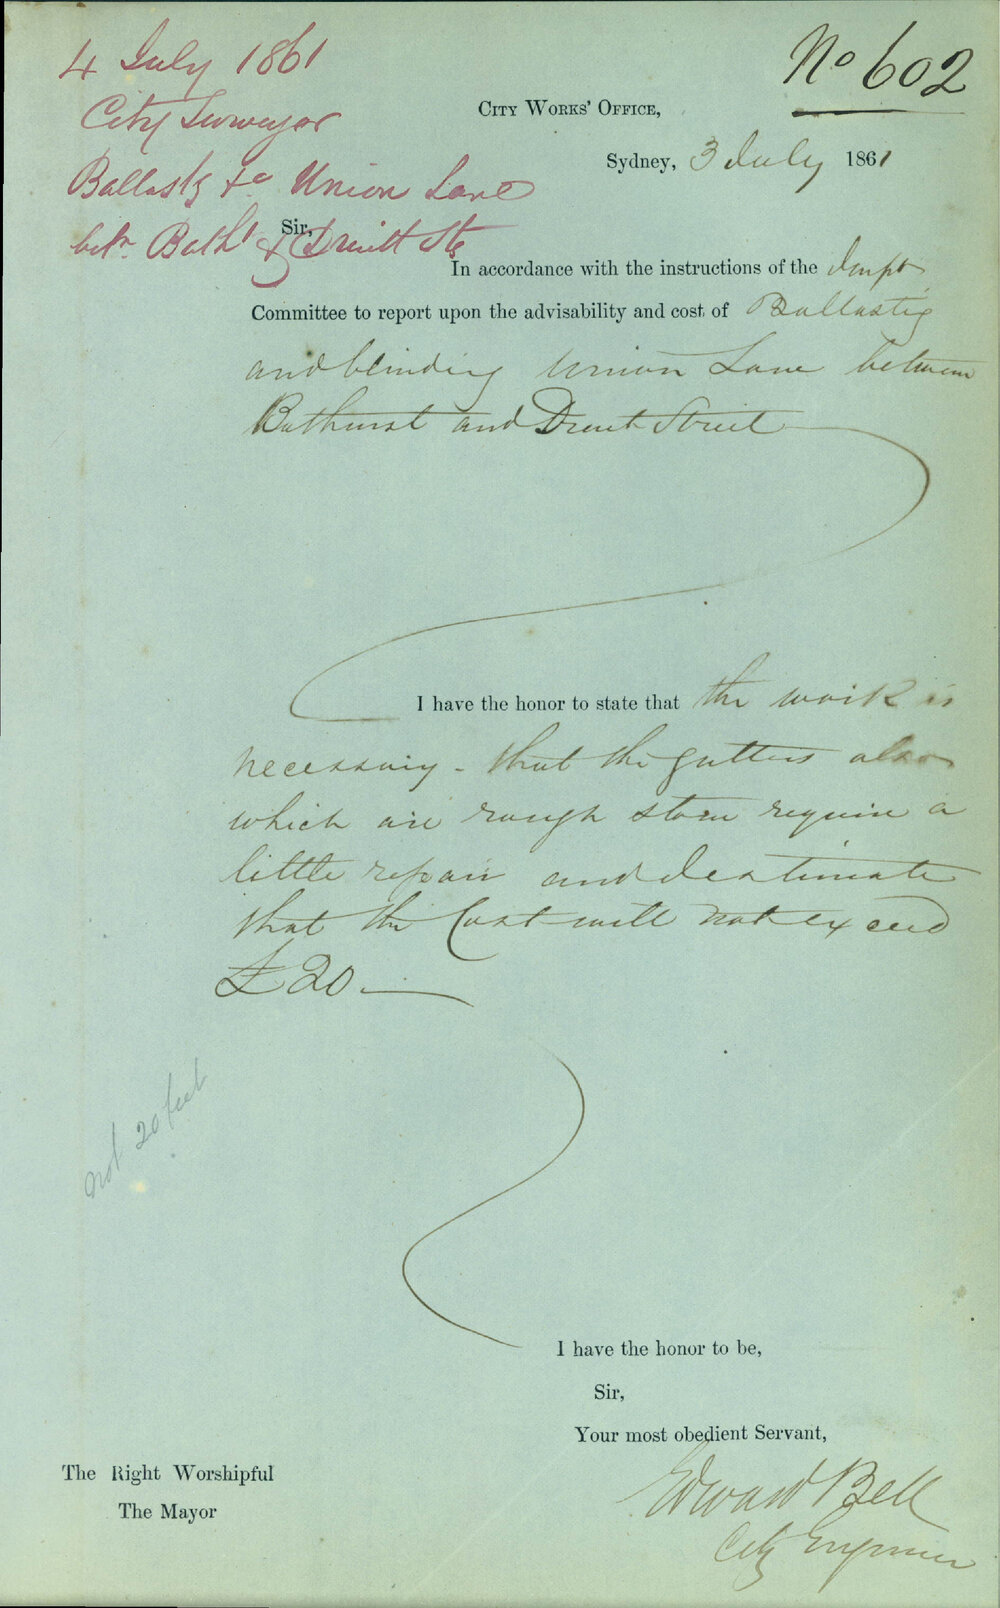 4 July 1861
City Surveyor
Ballastg &c Union Lane
betn Batht & Druitt Sts
No 602
CITY WORKS' OFFICE,
Sydney, 3 July 1861
Sir,
In accordance with the instructions of the Impt
Committee to report upon the advisability and cost of Ballastig
and blinding Union Lane between
Bathurst and Druitt Street
I have the honor to state that the work is
necessary - that the gutters also
which are rough stone require a
little repair and I estimate
that the Cost will not exceed
£20
not 20 feet
I have the honor to be,
Sir,
Your most obedient Servant,
Edward Bell
City Engineer
The Right Worshipful
The Mayor